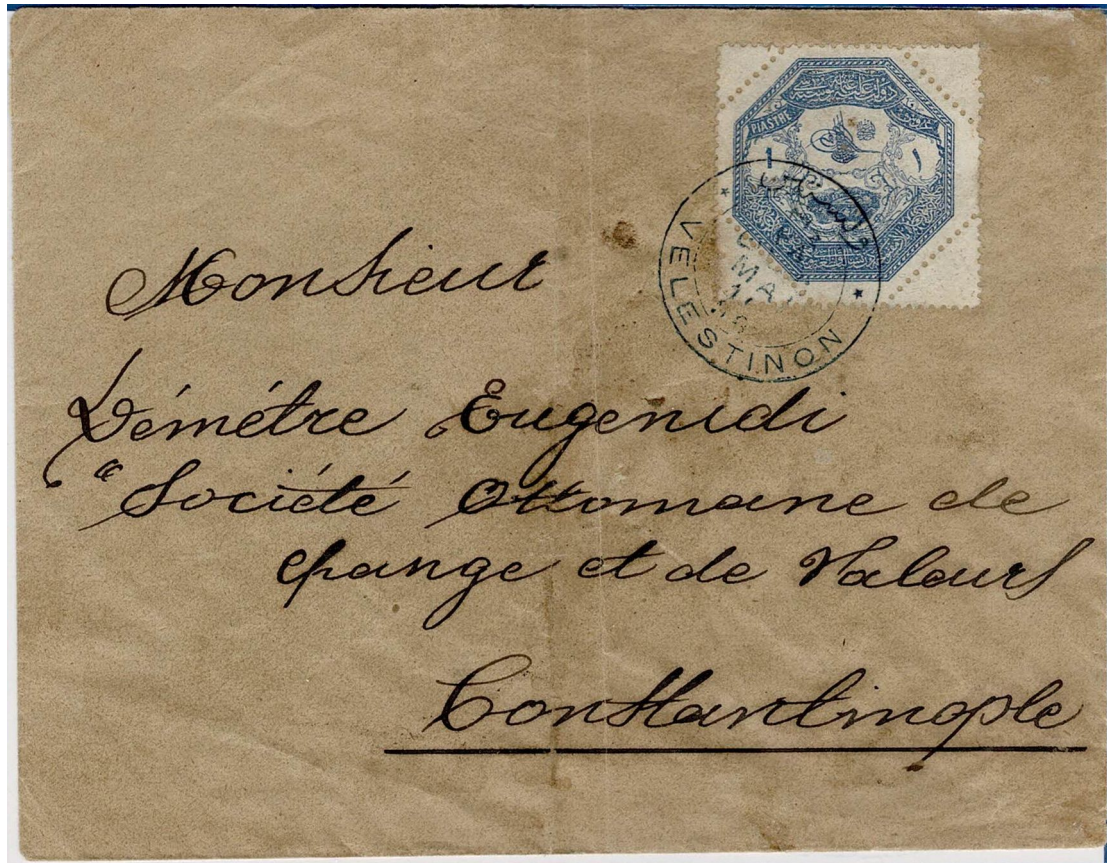 PIASTRE
1 ١
VELESTINON
MA
Monsieur
Démétre Eugenidi
"Société Ottomane de
change et de Valeurs
Constantinople